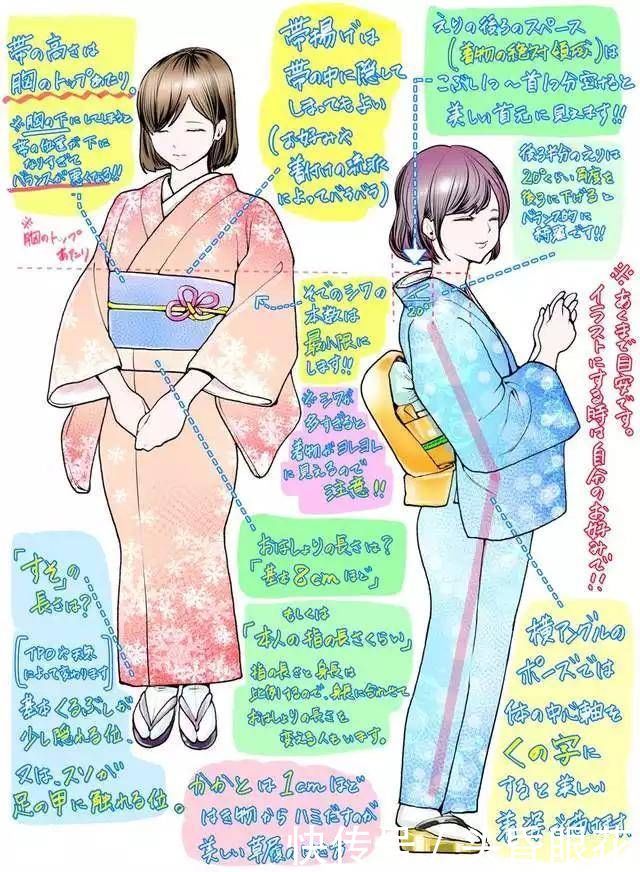 帯の高さは
胸のトップあたり。
※胸の下にしてしまうと
帯の位置が下に
なりすぎて
バランスが悪くなる!!
※
胸のトップ
あたり
帯揚げは
帯の中に隠して
しまってもよい
(お好みや
着付けの流派
によってバラバラ)
えりの後ろのスペース
(着物の絶対領域)は
こぶし1つ~首1つ分空けると
美しい首元に見えます!!
後ろ半分のえりは
20°くらい角度を
後ろに下げると
バランス的に
綺麗です!!
20°
※あくまで目安です。
イラストにする時は自分のお好みで!!
そでのシワの
本数は
最小限に
します!!
※シワが
多すぎると
着物がヨレヨレ
に見えるので
注意!!
おはしょりの長さは?
「基本8cmほど」
もしくは
「本人の指の長さくらい」
指の長さと身長は
比例するので、身長に合わせて
おはしょりの長さを
変える人もいます。
「すそ」の
長さは?
[TPOや天候
によって変わります]
基本くるぶしが
少し隠れる位、
又は、スソが
足の甲に触れる位。
かかとは1cmほど
はき物からハミだすのが
美しい草履の
横アングルの
ポーズでは
体の中心軸を
くの字に
すると美しい
快传号/